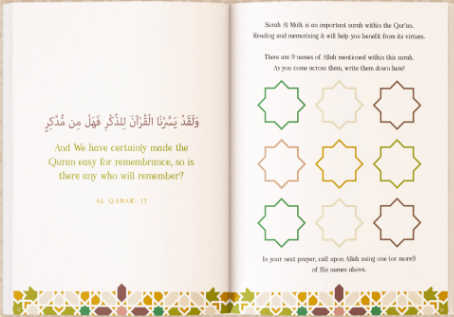 وَلَقَدْ يَسَّرْنَا الْقُرْآنَ لِلذِّكْرِ فَهَلْ مِن مُّدَّكِرٍ
And We have certainly made the
Quran easy for remembrance, so is
there any who will remember?
AL QAMAR: 17
Surah Al Mulk is an important surah within the Qur'an.
Reading and memorising it will help you benefit from its virtues.
There are 9 names of Allah mentioned within this surah.
As you come across them, write them down here!
In your next prayer, call upon Allah using one (or more!)
of His names above.